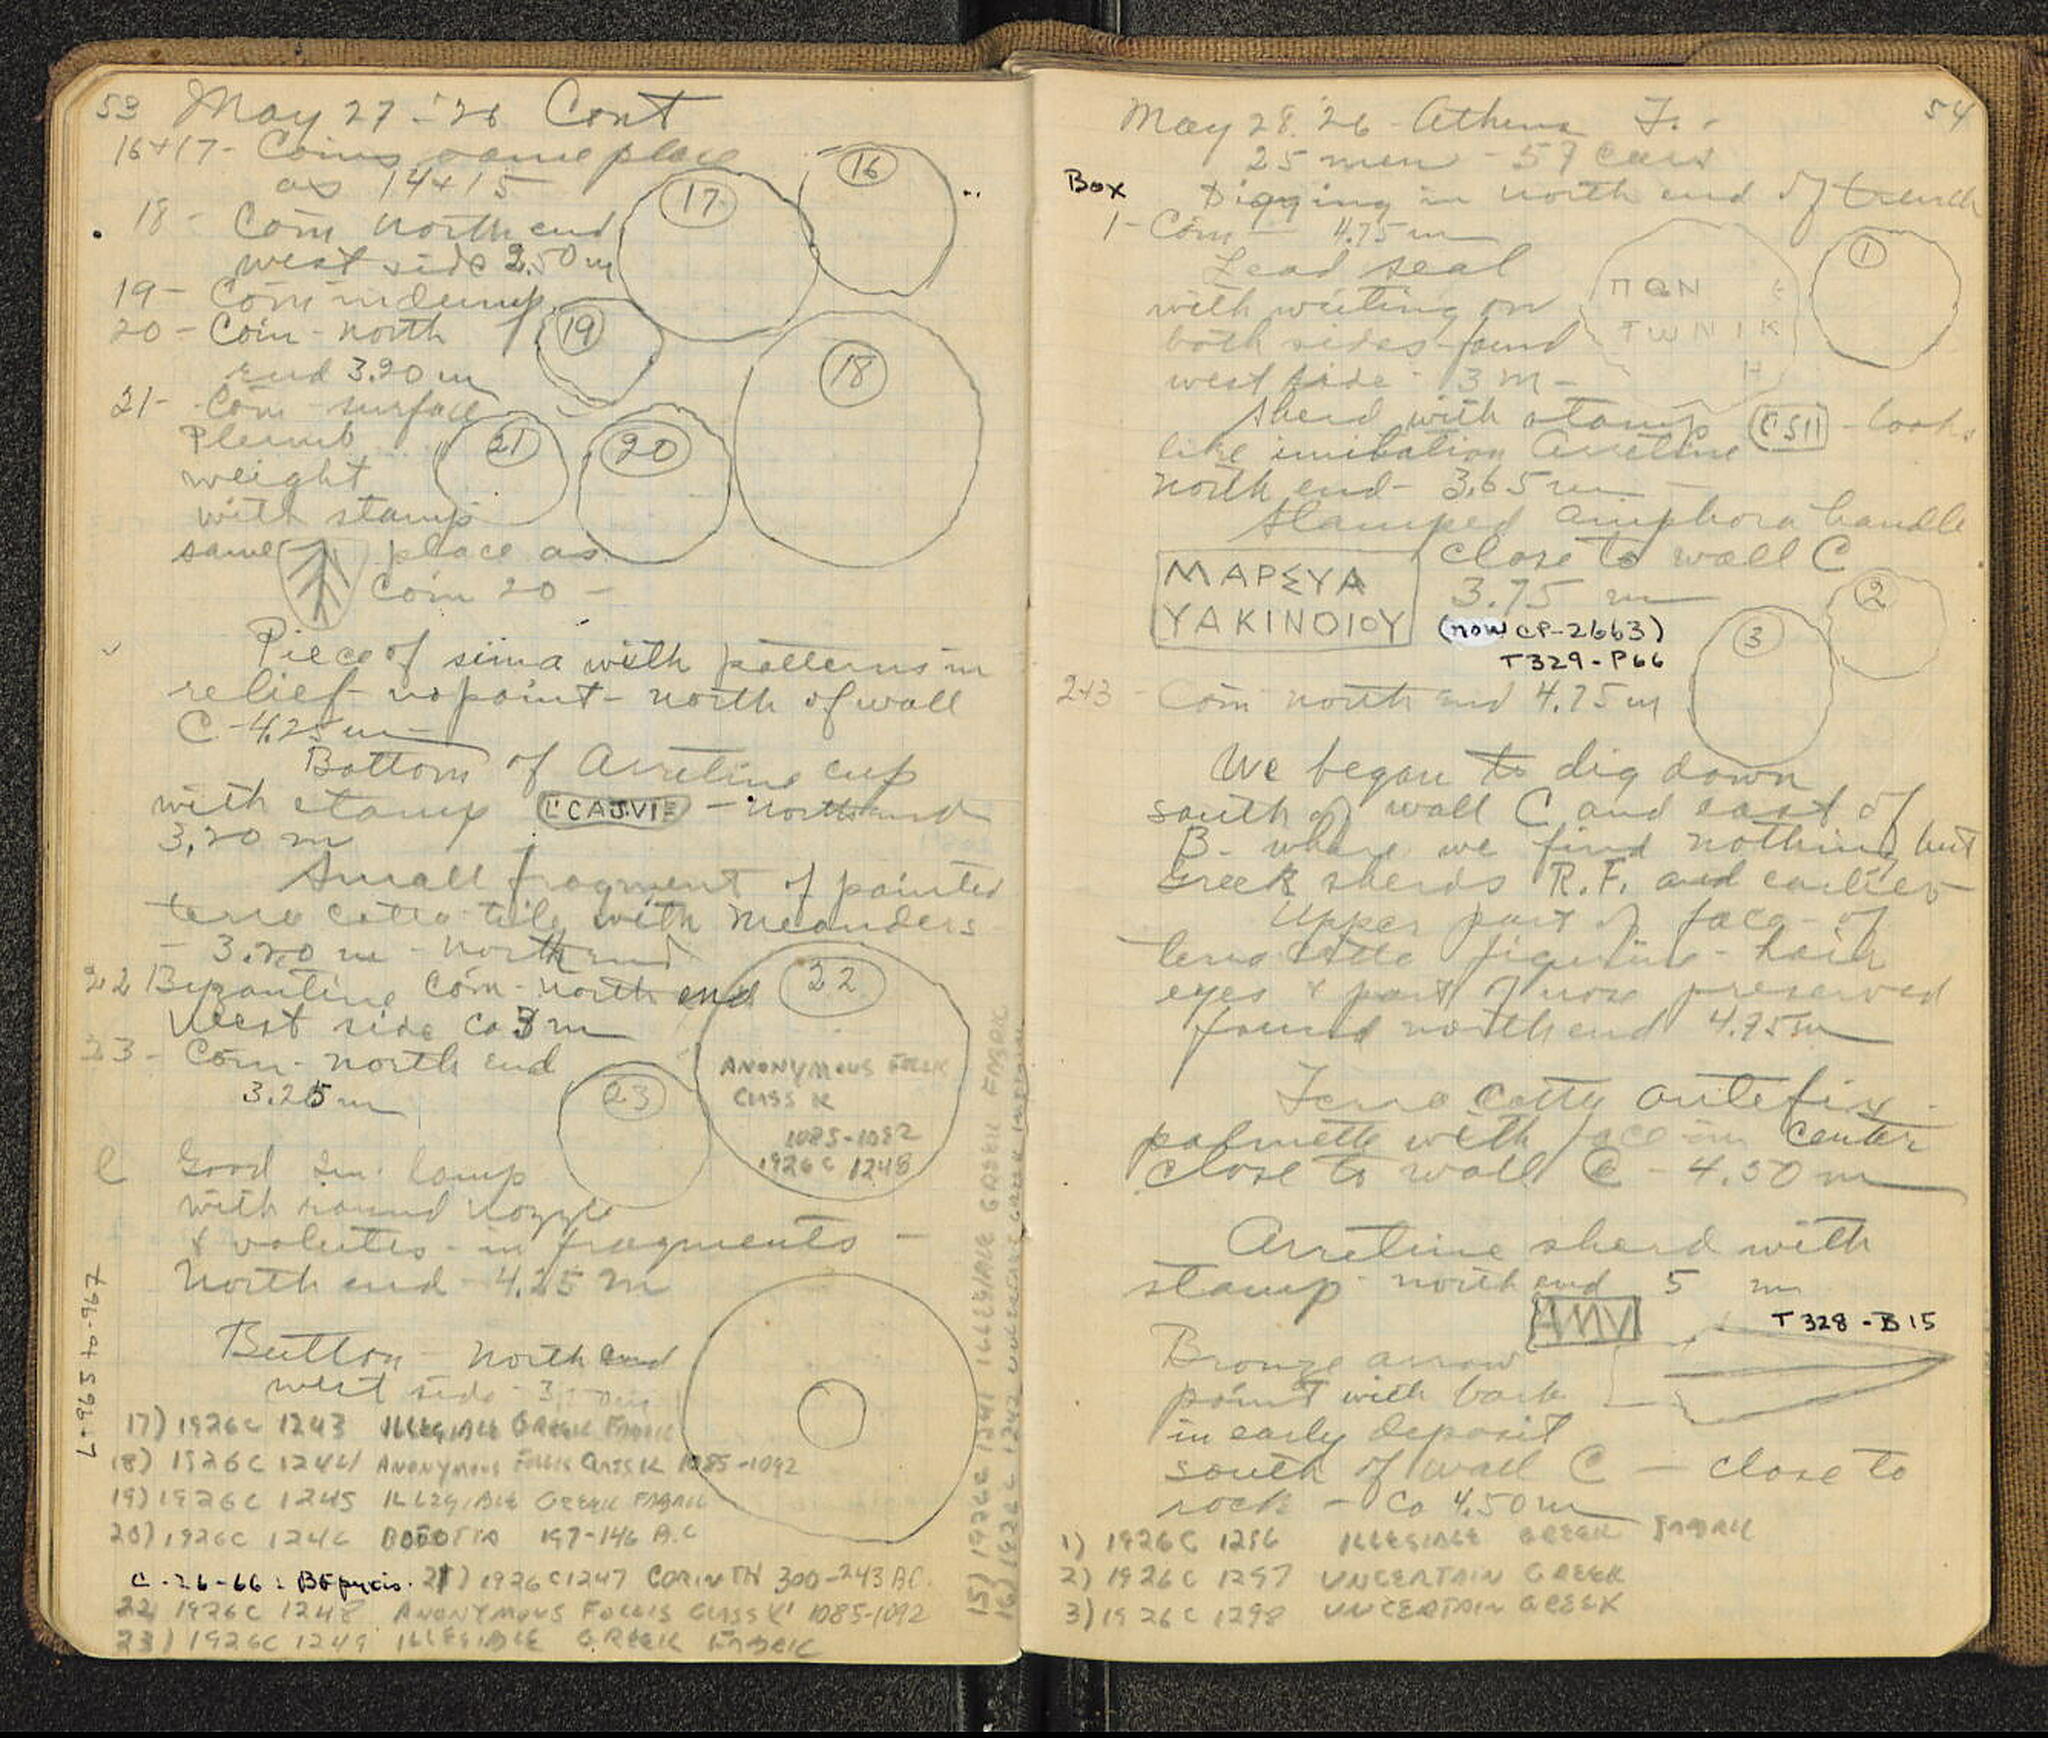 53 May 27 - '26 Cont
16+17 - Coins same place
as 14+15
18 - Coin north end
west side 2.50 m
19 - Coin in dump
20 - Coin - north
end 3.20 m
21 - Coin - surface
Plumb
weight
with stamp
same place as
Coin 20 -
16
17
18
19
20
21
Piece of sima with patterns in
relief - no paint - north of wall
C - 4.25 m
Bottom of Arretine cup
with stamp L'CAJ.VIE - North end
3,20 m
Small fragment of painted
terra cotta tile with meanders
- 3.20 m - north end
22 Byzantine Coin - north end
West side ca 3 m
23 - Coin - north end
3.25 m
22
ANONYMOUS FOLLIS
CLASS K
1085-1092
1926 C 1248
23
L Good Rm. lamp
with round nozzle
& volutes - in fragments -
North end - 4.25 m
L-995+967
Button - north end
west side - 3.
17) 1926 C 1243 ILLEGIBLE GREEK FABRIC
18) 1926 C 1244 ANONYMOUS FOLLIS CLASS K 1085-1092
19) 1926 C 1245 ILLEGIBLE GREEK FABRIC
20) 1926 C 1246 BOEOTIA 197-146 B.C
C-26-66: Βέργκις. 21) 1926 C 1247 CORINTH 300-243 BC.
22) 1926 C 1248 ANONYMOUS FOLLIS CLASS K 1085-1092
23) 1926 C 1249 ILLEGIBLE GREEK FABRIC
15) 1926 C 1241 ILLEGIBLE GREEK FABRIC
16) 1926 C 1242 UNCERTAIN GREEK IMPERIAL
54
May 28. '26 - Athena T. -
25 men - 57 cars
Box Digging in north end of trench
1 - Coin - 4.75 m
Lead seal
with writing on
both sides - found
west side - 3 m -
ΠΩΝ
ΤΩΝΙΚ
Η
1
Sherd with stamp - looks
like imitation Arretine
North end - 3.65 m -
Stamped amphora handle
close to wall C
3.75 m
ΜΑΡΣΥΑ
ΥΑΚΙΝΟΙΟΥ
(now CP-2663)
T329-P66
2
3
2+3 Coin north end 4.75 m
We began to dig down
south of wall C and east of
B - where we find nothing but
Greek sherds R.F. and earlier
Upper part of face - of
terra cotta figurine - hair
eyes & part of nose preserved
found north end 4.75 m
Terra cotta antefix -
palmette with face in center
close to wall C - 4.50 m
Arretine sherd with
stamp - north end 5 m
AMV
T 328 - B15
Bronze arrow
point with barb
in early deposit
south of wall C - close to
rock - Ca 4.50 m
1) 1926 C 1296 ILLEGIBLE GREEK FABRIC
2) 1926 C 1297 UNCERTAIN GREEK
3) 1926 C 1298 UNCERTAIN GREEK